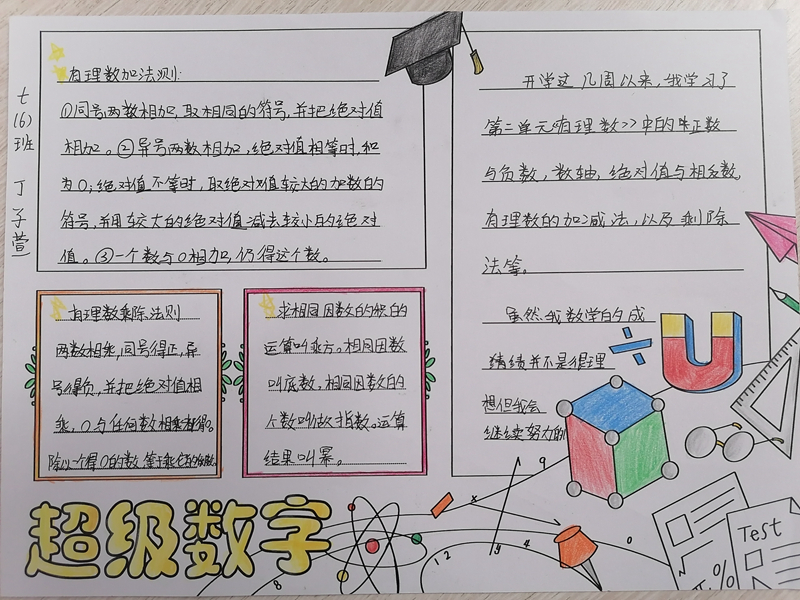 七(6)班 丁子萱
有理数加法则:
①同号两数相加,取相同的符号,并把绝对值
相加。②异号两数相加,绝对值相等时,和
为0;绝对值不等时,取绝对值较大的加数的
符号,并用较大的绝对值减去较小的绝对
值。③一个数与0相加,仍得这个数。
有理数乘除法则
两数相乘,同号得正,异
号得负,并把绝对值相
乘,0与任何数相乘都得0。
除以一个得0的数,等于乘它的倒数。
求相同因数的积的
运算叫乘方。相同因数
叫底数,相同因数的
个数叫做指数。运算
结果叫幂。
开学这几周以来,我学习了
第二单元《有理数》中的正数
与负数,数轴,绝对值与相反数,
有理数的加减法,以及乘除
法等。
虽然我数学的成
绩绩并不是很理
想但我会
继续努力的
超级数字
x
9
y
1 2
4
0
8
Test
%